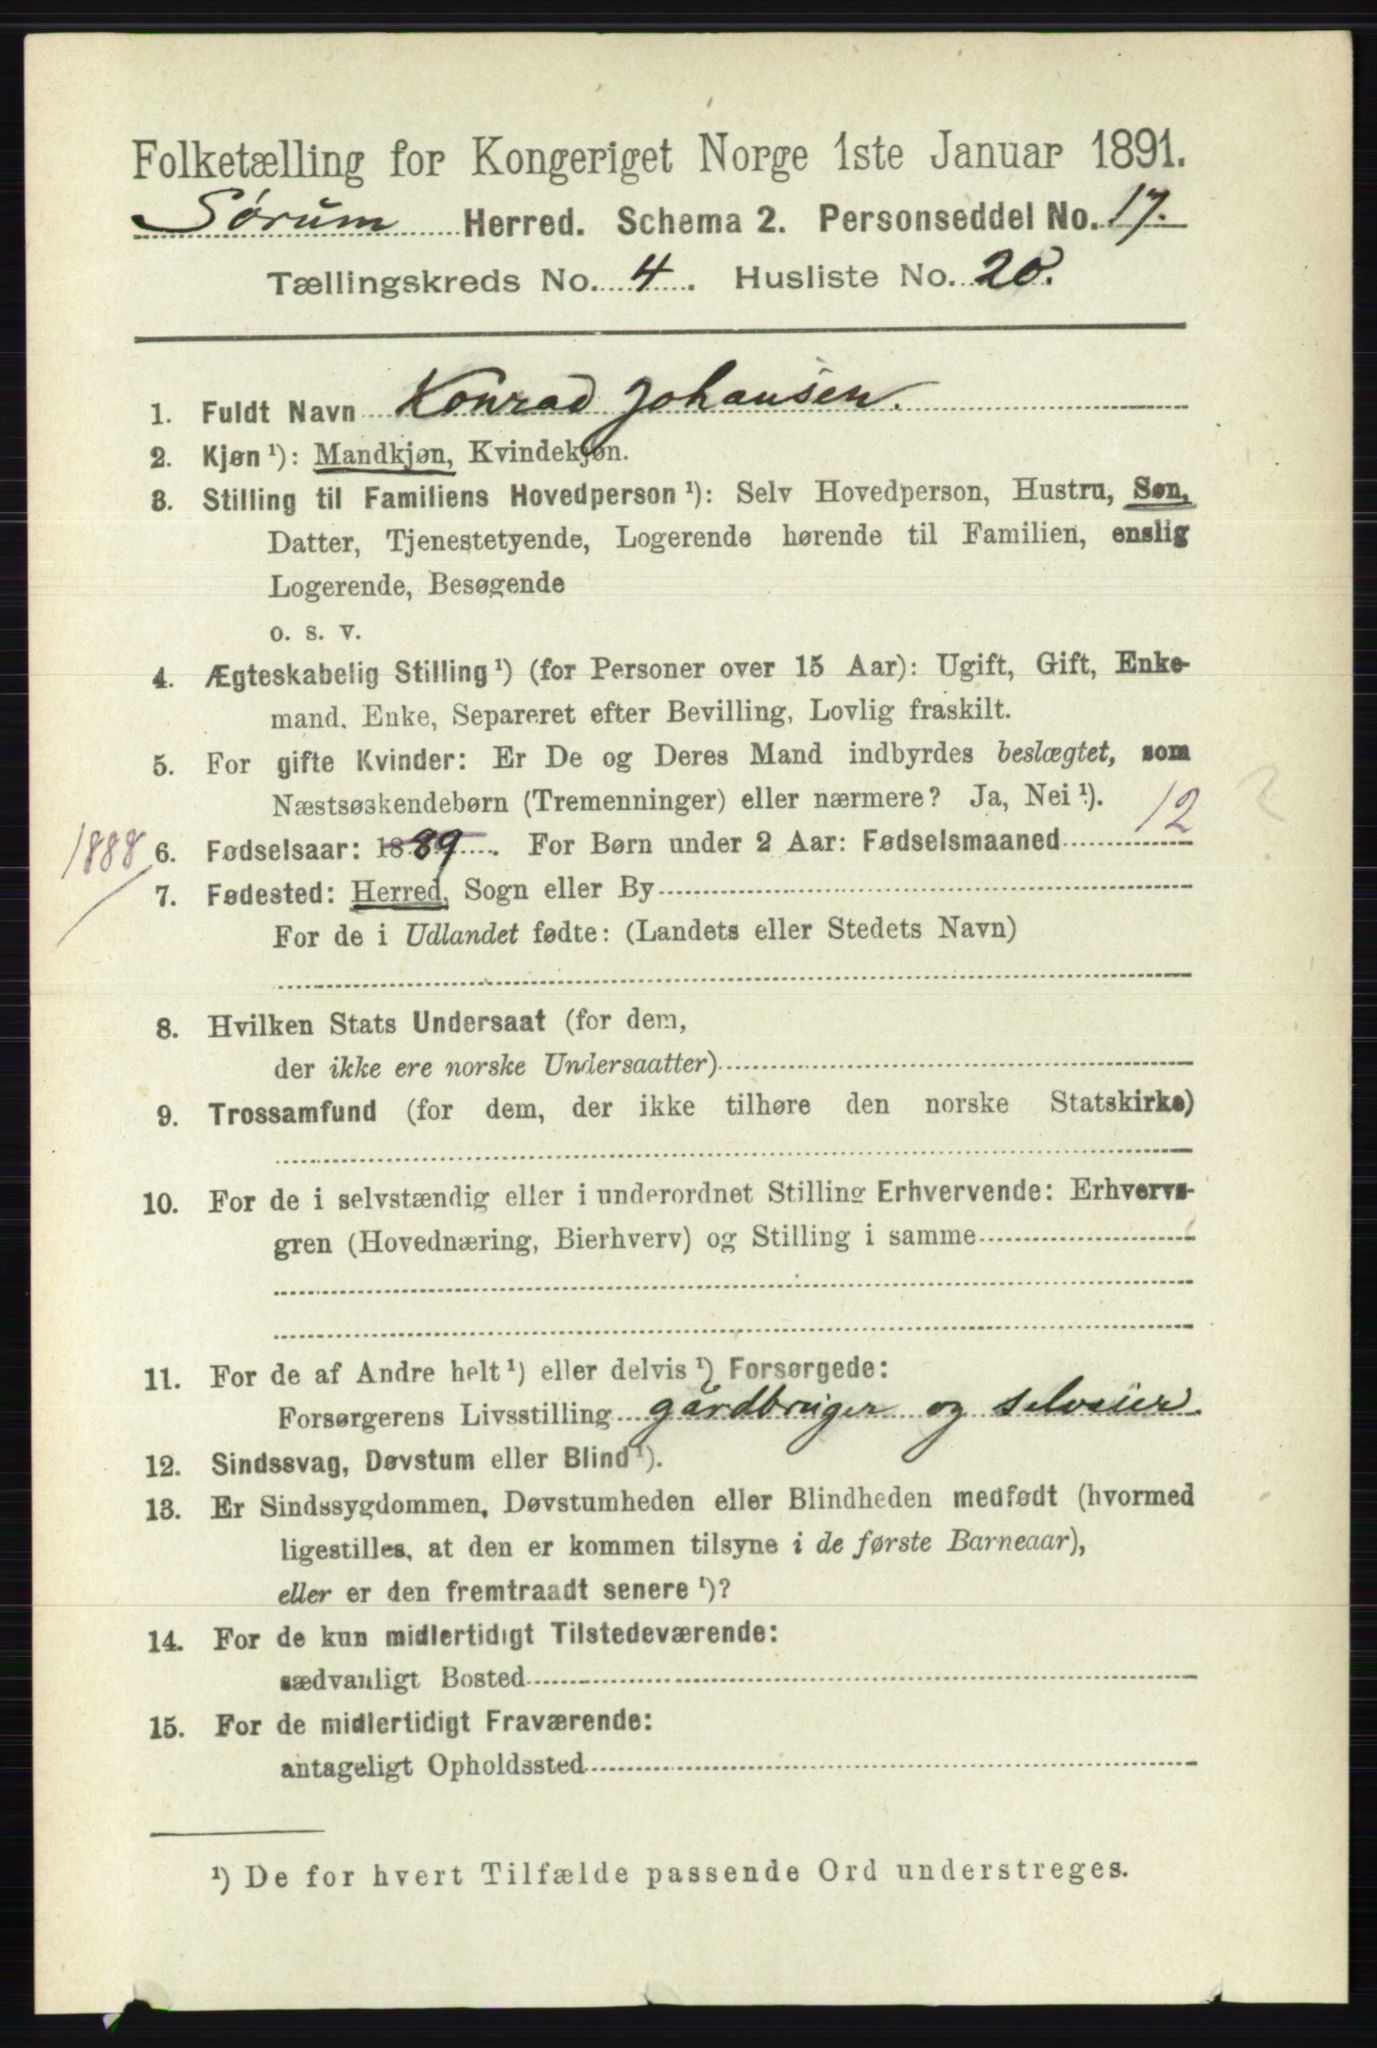 Folketælling for Kongeriget Norge 1ste Januar 1891.
Sørum Herred. Schema 2. Personseddel No. 17.
Tællingskreds No. 4. Husliste No. 20.
1. Fuldt Navn Konrad Johansen.
2. Kjøn ¹): Mandkjøn, Kvindekjøn.
3. Stilling til Familiens Hovedperson ¹): Selv Hovedperson, Hustru, Søn,
Datter, Tjenestetyende, Logerende hørende til Familien, enslig
Logerende, Besøgende
o. s. v.
4. Ægteskabelig Stilling ¹) (for Personer over 15 Aar): Ugift, Gift, Enke-
mand, Enke, Separeret efter Bevilling, Lovlig fraskilt.
5. For gifte Kvinder: Er De og Deres Mand indbyrdes beslægtet, som
Næstsøskendebørn (Tremenninger) eller nærmere? Ja, Nei ¹).
1888 6. Fødselsaar: 1889. For Børn under 2 Aar: Fødselsmaaned 12
7. Fødested: Herred, Sogn eller By
For de i Udlandet fødte: (Landets eller Stedets Navn)
8. Hvilken Stats Undersaat (for dem,
der ikke ere norske Undersaatter)
9. Trossamfund (for dem, der ikke tilhøre den norske Statskirke)
10. For de i selvstændig eller i underordnet Stilling Erhvervende: Erhvervs-
gren (Hovednæring, Bierhverv) og Stilling i samme
11. For de af Andre helt ¹) eller delvis ¹) Forsørgede:
Forsørgerens Livsstilling gårdbruger og selveier.
12. Sindssvag, Døvstum eller Blind ¹).
13. Er Sindssygdommen, Døvstumheden eller Blindheden medfødt (hvormed
ligestilles, at den er kommen tilsyne i de første Barneaar),
eller er den fremtraadt senere ¹)?
14. For de kun midlertidigt Tilstedeværende:
sædvanligt Bosted
15. For de midlertidigt Fraværende:
antageligt Opholdssted
¹) De for hvert Tilfælde passende Ord understreges.